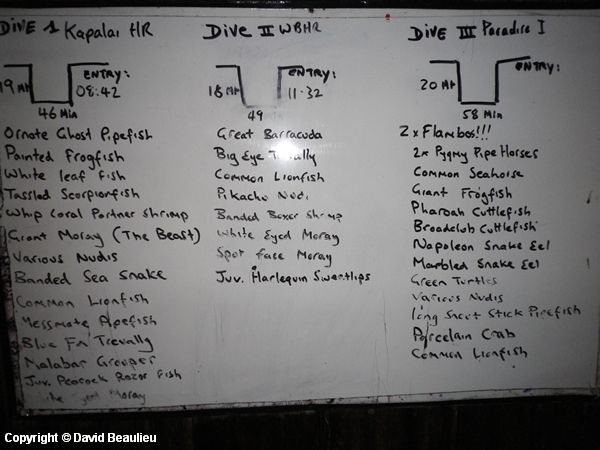 DIVE 1 Kapalai HR
19 Mt
ENTRY:
08:42
46 Min
Ornate Ghost Pipefish
Painted Frogfish
White leaf fish
Tassled Scorpionfish
Whip Coral Partner Shrimp
Giant Moray (The Beast)
Various Nudis
Banded Sea Snake
Common Lionfish
Messmate Pipefish
Blue Fin Trevally
Malabar Grouper
Juv. Peacock Razor Fish
Moray
DIVE II WBHR
18 Mt
ENTRY:
11:32
49
Great Barracuda
Big Eye Trevally
Common Lionfish
Pikachu Nudi
Banded Boxer Shrimp
White Eyed Moray
Spot Face Moray
Juv. Harlequin Sweetlips
DIVE III Paradise I
20 Mt
ENTRY:
58 Min
2 x Flambos!!!
2x Pygmy Pipe Horses
Common Seahorse
Giant Frogfish
Pharoah Cuttlefish
Broadclub Cuttlefish
Napoleon Snake Eel
Marbled Snake Eel
Green Turtles
Various Nudis
long Snout Stick Pipefish
Porcelain Crab
Common Lionfish
Copyright © David Beaulieu